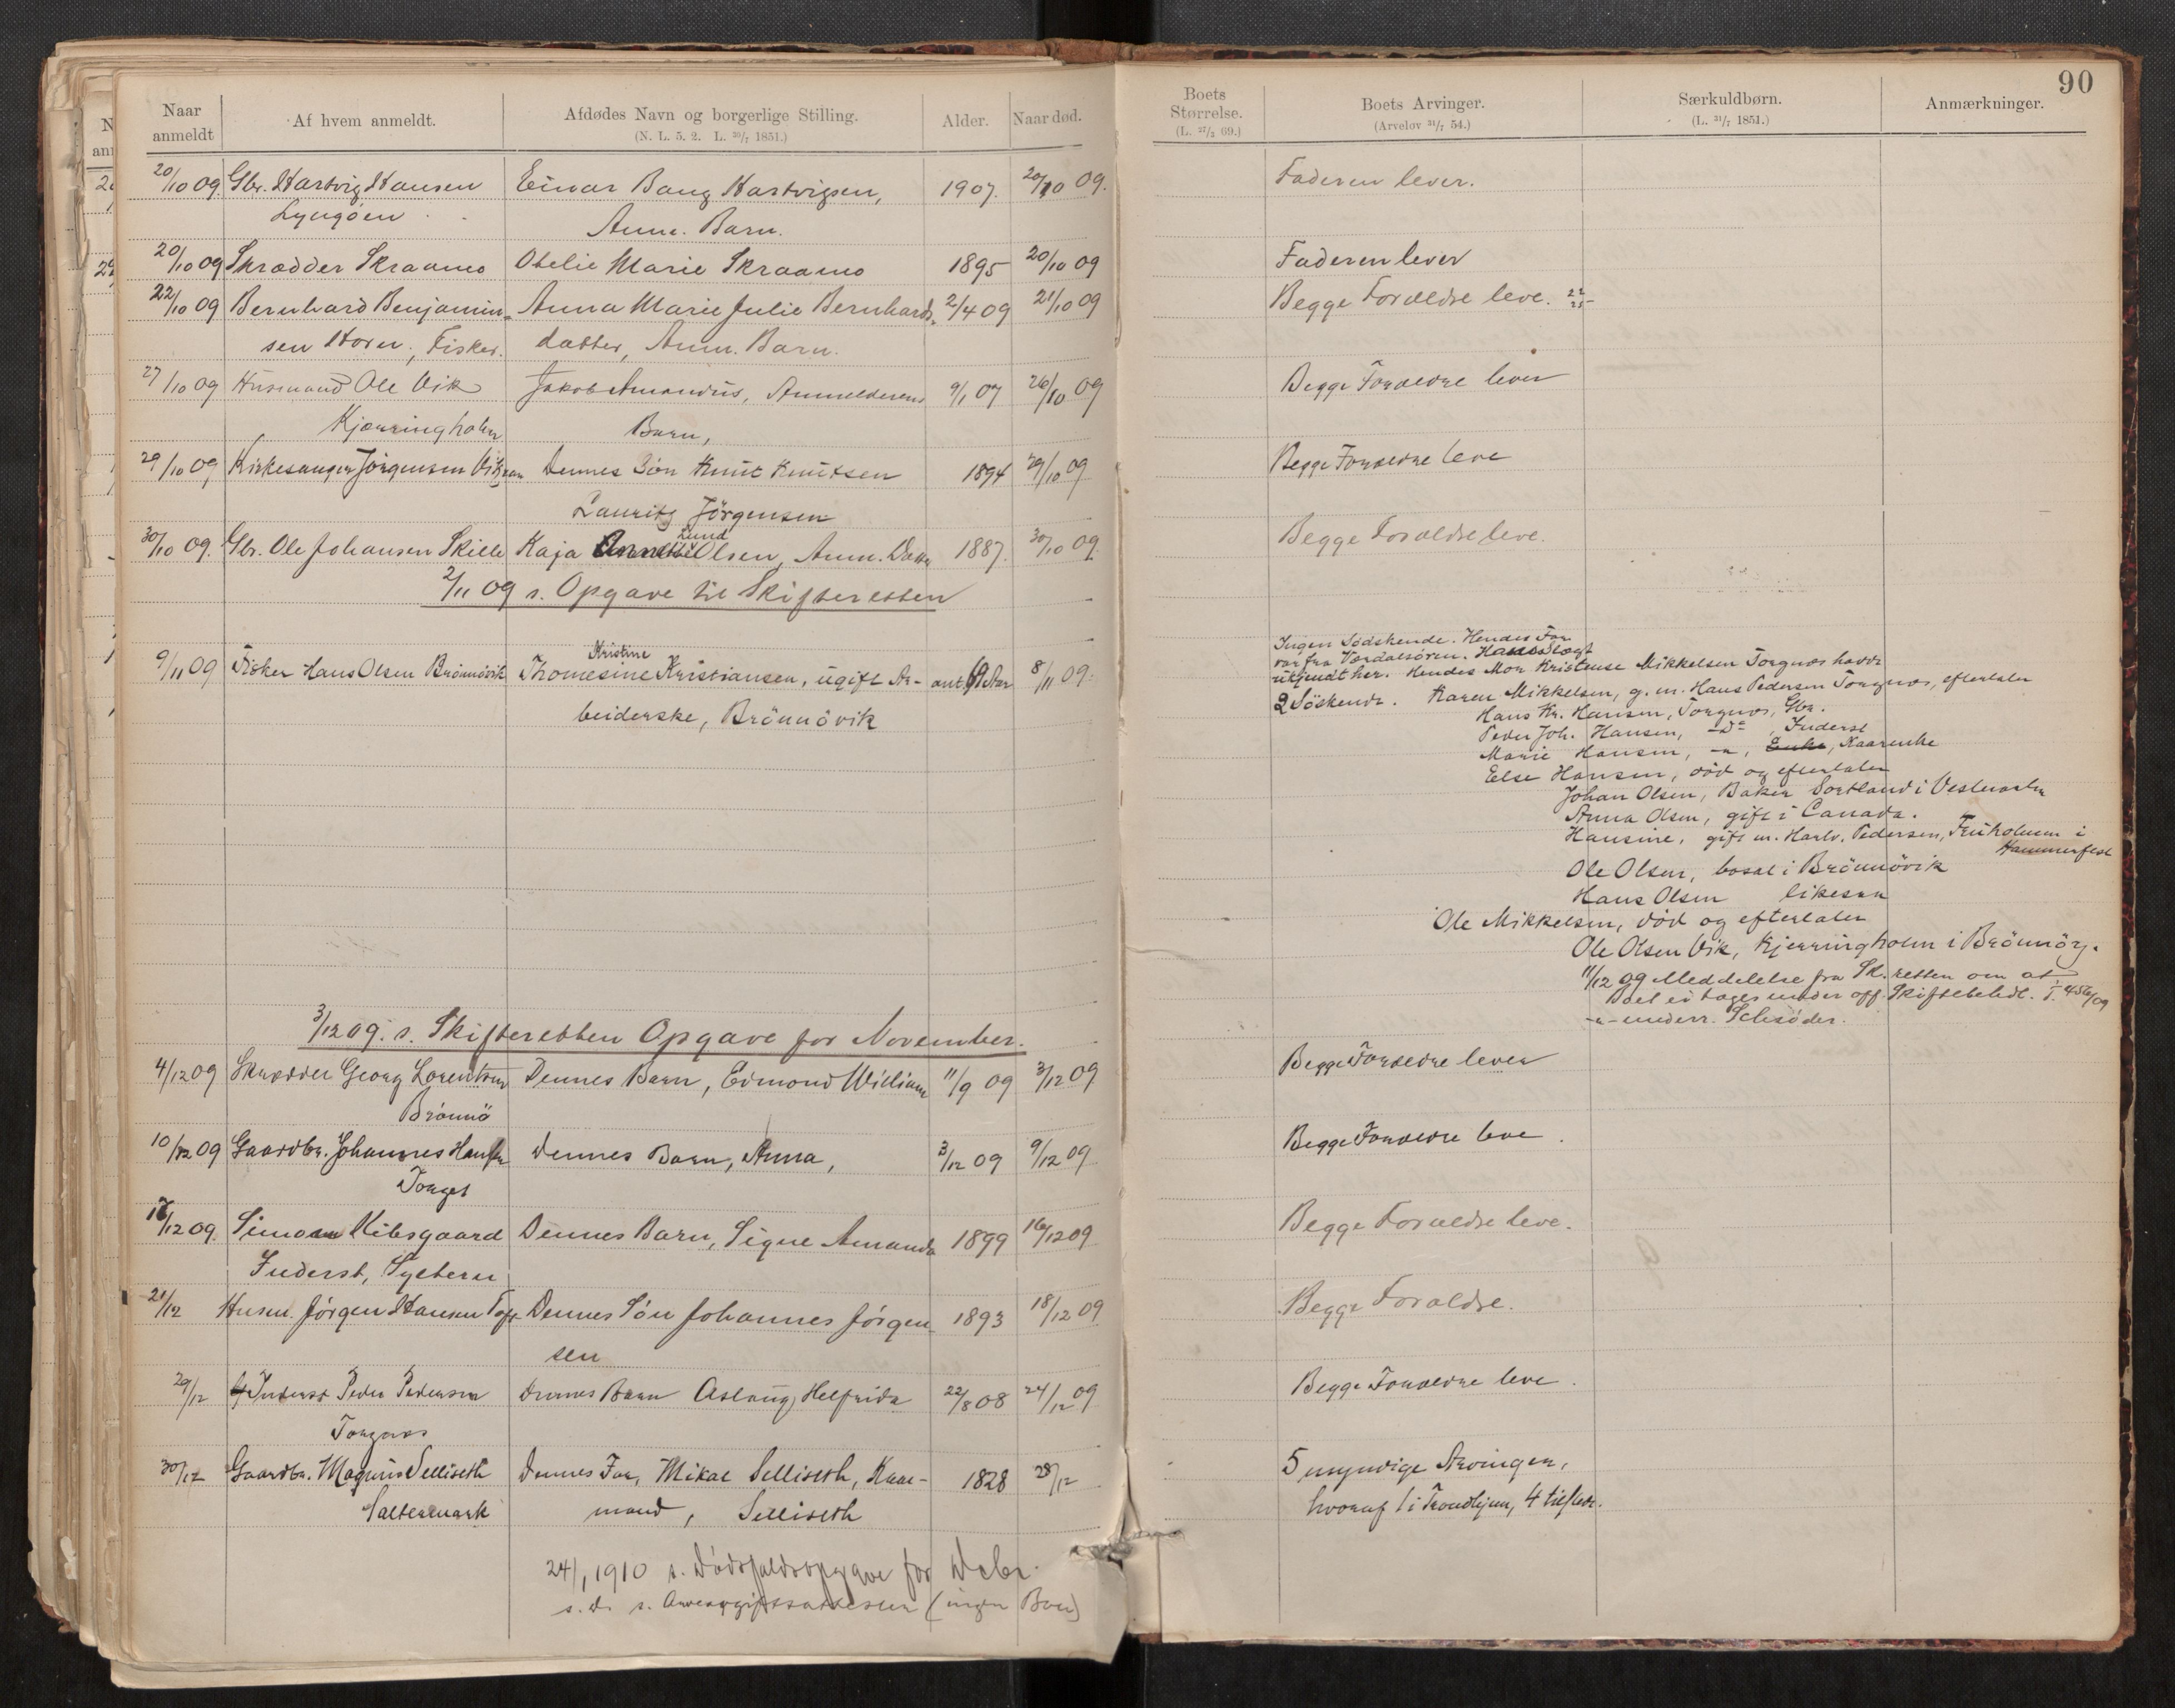 90
Naar anmeldt
Af hvem anmeldt.
Afdødes Navn og borgerlige Stilling.
(N. L. 5. 2. L. 30/7 1851.)
Alder.
Naar død.
Boets Størrelse.
(L. 27/2 69.)
Boets Arvinger.
(Arvelov 31/7 54.)
Særkuldbørn.
(L. 31/7 1851.)
Anmærkninger.
20/10 09. Gbr. Hartvig Hansen Einar Bang Hartvigsen, 1907. 20/10 09. Faderen lever.
Lyngøen Anm. Barn.
20/10 09 Skrædder Skraamo Otelie Marie Skraamo 1895 20/10 09 Faderen lever
22/10 09 Bernhard Benjamin- Anna Marie Julie Bernhards- 2/4 09 21/10 09 Begge Forældre leve.
sen Horn, Fisker. datter, Anm. Barn.
27/10 09 Husmand Ole Vik Jakob Amandus, Anmelderens 9/1 07 26/10 09 Begge Forældre lever
Kjærringholm Barn,
29/10 09 Kirkesanger Jörgensen Dennes Sön Knut Knutsen 1894 29/10 09 Begge Forældre leve
Lauritz Jörgensen
Lund
30/10 09. Gbr. Ole Johansen Skille Kaja Olsen, Anm. Datter 1887. 30/10 09. Begge Forældre leve.
2/11 09 s. Opgave til Skifteretten
Kristine
9/11 09 Fisker Hans Olsen Brönnövik Thomesine Kristiansen, ugift Ar- ant. Aar 8/11 09.
beiderske, Brönnövik
Ingen Södskende. Hendes Far
var fra Værdalsören. Hans slægt
ukjendt her. Hendes Mor Kristense Mikkelsen Torgnæs havde
2 Söskende. Karen Mikkelsen, g. m. Hans Pedersen Torgnæs, efterlater
Hans Kr. Hansen, Torgnæs, Gbr.
Peder Joh. Hansen, -do-, Inderst
Marie Hansen, -"-, Enke, Kaarenke
Else Hansen, död og efterlater
Johan Olsen, Baker Sortland i Vesteraalen
Anna Olsen, gift i Canada.
Hansine, gift m. Hartv. Pedersen, Fruholmen i
Hammerfest
Ole Olsen, bosat i Brönnövik
Hans Olsen likesaa
Ole Mikkelsen, död og efterlater
Ole Olsen Vik, Kjerringholm i Brönnöy.
11/12 09 Meddelelse fra Sk.retten om at
Boet ei tages under off. Skiftebehdl. J. 456/09
-"- underr. Schröder.
3/12 09. s. Skifteretten Opgave for November.
4/12 09 Skrædder Georg Lorentsen Dennes Barn, Edmond William 11/9 09 3/12 09 Begge Forældre lever
Brönnö
10/12 09 Gaardbr. Johannes Hansen Dennes Barn, Anna, 3/12 09 9/12 09 Begge Forældre leve.
Torget
12 09. Simon Kibsgaard Dennes Barn, Signe Amanda 1899 16/12 09 Begge Forældre leve.
Inderst, Sylteren
21/12 Husm. Jörgen Hansen Toft Dennes Sön Johannes Jörgen- 1893 18/12 09 Begge Forældre.
sen
29/12 Inderst Peder Pedersen Dennes Barn Aslaug Helfrida 22/8 08 24/12 09 Begge Forældre leve.
Torgnæs
30/12 Gaardbr. Magnus Selliseth Dennes Far, Mikal Selliseth, Kaar- 1828 28/12 5 myndige Arvinger,
Saltermark mand, Selliseth hvoraf 1 i Trondhjem, 4 tilstede.
24/1 1910 s. Dödsfaldsopgave for Debr.
s. d. s. (ingen Boer)